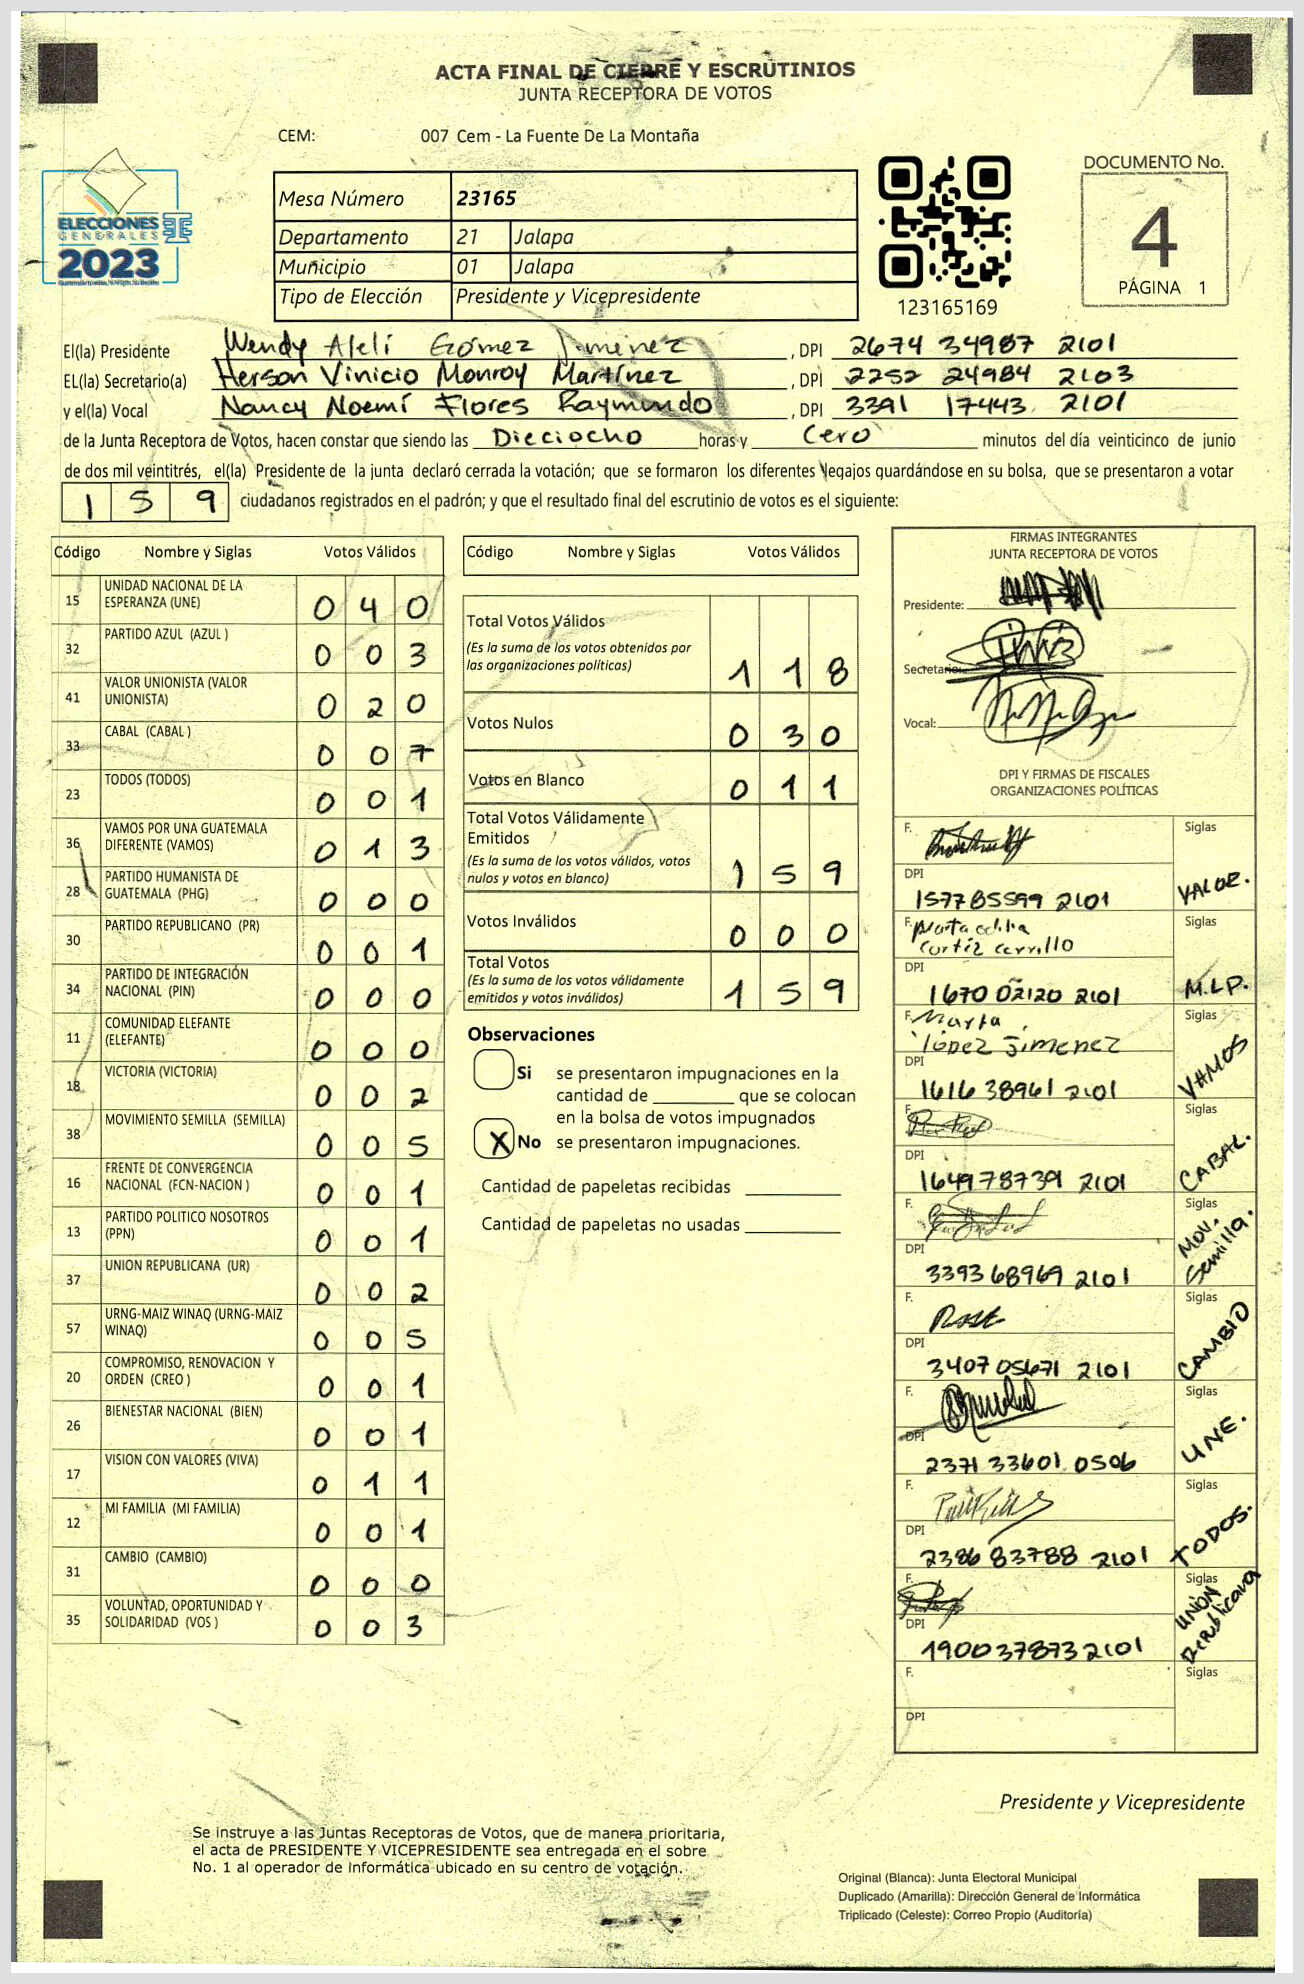 ACTA FINAL DE CIERRE Y ESCRUTINIOS
JUNTA RECEPTORA DE VOTOS
CEM: 007 Cem - La Fuente De La Montaña
ELECCIONES
GENERALES
2023
Mesa Número 23165
Departamento 21 Jalapa
Municipio 01 Jalapa
Tipo de Elección Presidente y Vicepresidente
123165169
DOCUMENTO No.
4
PÁGINA 1
El(la) Presidente Wendy Aleli Gómez Jiménez , DPI 2674 34987 2101
EL(la) Secretario(a) Herson Vinicio Monroy Martínez , DPI 2252 24984 2103
y el(la) Vocal Nancy Noemí Flores Raymundo , DPI 3391 17443 2101
de la Junta Receptora de Votos, hacen constar que siendo las Dieciocho horas y Cero minutos del día veinticinco de junio
de dos mil veintitrés, el(la) Presidente de la junta declaró cerrada la votación; que se formaron los diferentes legajos guardándose en su bolsa, que se presentaron a votar
1 5 9 ciudadanos registrados en el padrón; y que el resultado final del escrutinio de votos es el siguiente:
Código Nombre y Siglas Votos Válidos
15 UNIDAD NACIONAL DE LA
ESPERANZA (UNE) 0 4 0
32 PARTIDO AZUL (AZUL ) 0 0 3
41 VALOR UNIONISTA (VALOR
UNIONISTA) 0 2 0
33 CABAL (CABAL ) 0 0 7
23 TODOS (TODOS) 0 0 1
36 VAMOS POR UNA GUATEMALA
DIFERENTE (VAMOS) 0 1 3
28 PARTIDO HUMANISTA DE
GUATEMALA (PHG) 0 0 0
30 PARTIDO REPUBLICANO (PR) 0 0 1
34 PARTIDO DE INTEGRACIÓN
NACIONAL (PIN) 0 0 0
11 COMUNIDAD ELEFANTE
(ELEFANTE) 0 0 0
18 VICTORIA (VICTORIA) 0 0 2
38 MOVIMIENTO SEMILLA (SEMILLA) 0 0 5
16 FRENTE DE CONVERGENCIA
NACIONAL (FCN-NACION ) 0 0 1
13 PARTIDO POLITICO NOSOTROS
(PPN) 0 0 1
37 UNION REPUBLICANA (UR) 0 0 2
57 URNG-MAIZ WINAQ (URNG-MAIZ
WINAQ) 0 0 5
20 COMPROMISO, RENOVACION Y
ORDEN (CREO ) 0 0 1
26 BIENESTAR NACIONAL (BIEN) 0 0 1
17 VISION CON VALORES (VIVA) 0 1 1
12 MI FAMILIA (MI FAMILIA) 0 0 1
31 CAMBIO (CAMBIO) 0 0 0
35 VOLUNTAD, OPORTUNIDAD Y
SOLIDARIDAD (VOS ) 0 0 3
Código Nombre y Siglas Votos Válidos
Total Votos Válidos
(Es la suma de los votos obtenidos por
las organizaciones políticas) 1 1 8
Votos Nulos 0 3 0
Votos en Blanco 0 1 1
Total Votos Válidamente
Emitidos
(Es la suma de los votos válidos, votos
nulos y votos en blanco) 1 5 9
Votos Inválidos 0 0 0
Total Votos
(Es la suma de los votos válidamente
emitidos y votos inválidos) 1 5 9
Observaciones
Si se presentaron impugnaciones en la
cantidad de ________ que se colocan
en la bolsa de votos impugnados
X No se presentaron impugnaciones.
Cantidad de papeletas recibidas
Cantidad de papeletas no usadas
FIRMAS INTEGRANTES
JUNTA RECEPTORA DE VOTOS
Presidente:
Secretario:
Vocal:
DPI Y FIRMAS DE FISCALES
ORGANIZACIONES POLÍTICAS
F. Siglas
DPI
157785599 2101 VALOR.
F. Marta odilia Siglas
Cortéz Carrillo
DPI
1670 02120 2101 M.L.P.
F. Marta Siglas
López Jimenez
DPI
1616 38961 2101 VAMOS
F. Siglas
DPI
1649 78739 2101 CABAL.
F. Siglas
DPI MOV.
Semilla.
3393 68969 2101
F. Siglas
DPI
3407 05671 2101 CAMBIO
F. Siglas
DPI
2371 33601 0506 UNE.
F. Siglas
DPI
2386 83788 2101 TODOS.
F. Siglas
DPI UNIÓN
Republicana
1900378732101
F. Siglas
DPI
Presidente y Vicepresidente
Se instruye a las Juntas Receptoras de Votos, que de manera prioritaria,
el acta de PRESIDENTE Y VICEPRESIDENTE sea entregada en el sobre
No. 1 al operador de Informática ubicado en su centro de votación.
Original (Blanca): Junta Electoral Municipal
Duplicado (Amarilla): Dirección General de Informática
Triplicado (Celeste): Correo Propio (Auditoría)